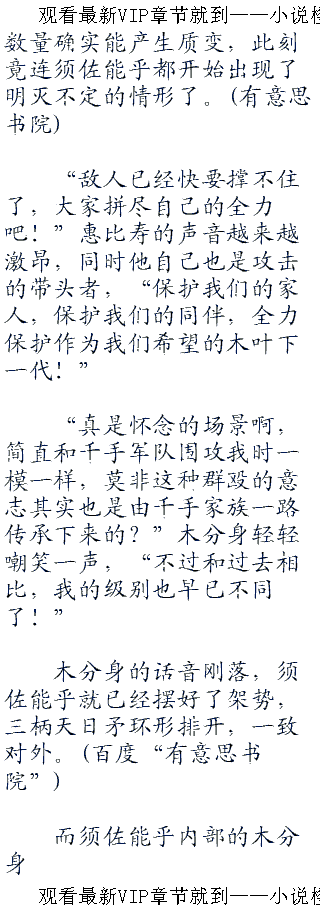 观看最新VIP章节就到——小说
数量确实能产生质变，此刻
竟连须佐能乎都开始出现了
明灭不定的情形了。(有意思
书院)
“敌人已经快要撑不住
了，大家拼尽自己的全力
吧！”惠比寿的声音越来越
激昂，同时他自己也是攻击
的带头者，“保护我们的家
人，保护我们的同伴，全力
保护作为我们希望的木叶下
一代！”
“真是怀念的场景啊，
简直和千手军队围攻我时一
模一样，莫非这种群殴的意
志其实也是由千手家族一路
传承下来的？”木分身轻轻
嘲笑一声，“不过和过去相
比，我的级别也早已不同
了！”
木分身的话音刚落，须
佐能乎就已经摆好了架势，
三柄天日矛环形排开，一致
对外。(百度“有意思书
院”)
而须佐能乎内部的木分
身
观看最新VIP章节就到——小说